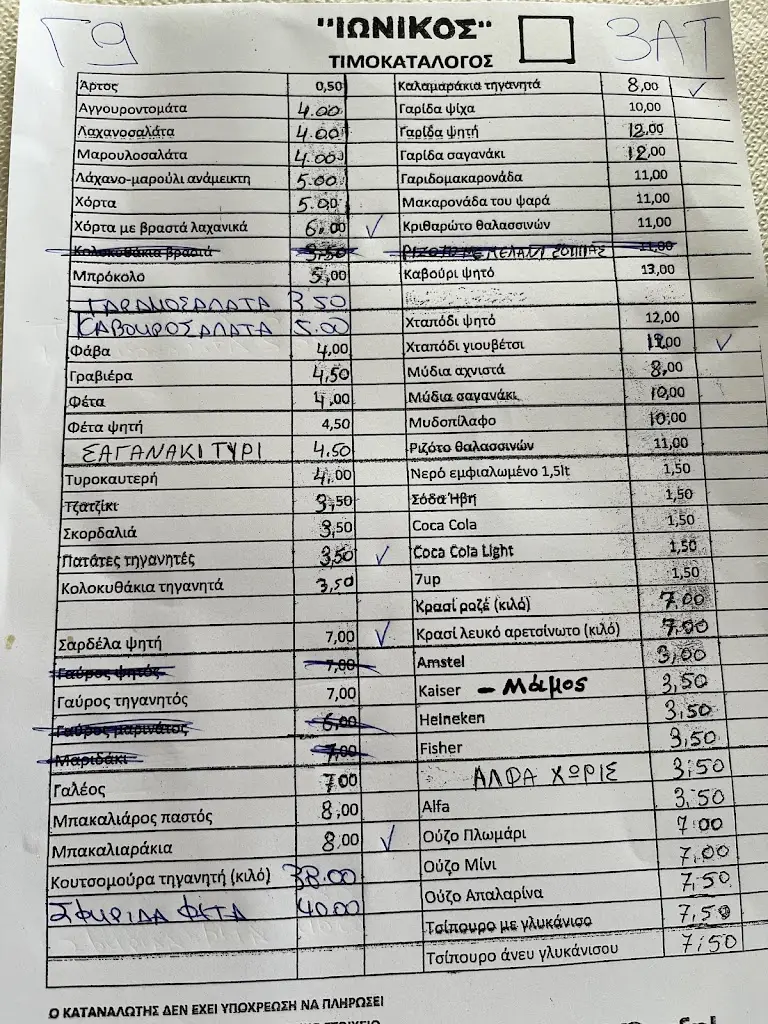 Γ9
"ΙΩΝΙΚΟΣ"
3ΑΤ
ΤΙΜΟΚΑΤΑΛΟΓΟΣ
Άρτος 0,50
Αγγουροντομάτα 4.00
Λαχανοσαλάτα 4.00
Μαρουλοσαλάτα 4.00
Λάχανο-μαρούλι ανάμεικτη 5.00
Χόρτα 5.00
Χόρτα με βραστά λαχανικά 6,00 ✓
Κολοκυθάκια βραστά 3,50
Μπρόκολο 5,00
ΤΑΡΑΜΟΣΑΛΑΤΑ 3.50
ΚΑΒΟΥΡΟΣΑΛΑΤΑ 5.00
Φάβα 4,00
Γραβιέρα 4,50
Φέτα 4,00
Φέτα ψητή 4,50
ΣΑΓΑΝΑΚΙ ΤΥΡΙ 4.50
Τυροκαυτερή 4,00
Τζατζίκι 3,50
Σκορδαλιά 3,50
Πατάτες τηγανητές 3,50 ✓
Κολοκυθάκια τηγανητά 3,50
Σαρδέλα ψητή 7,00 ✓
Γαύρος ψητός 7,00
Γαύρος τηγανητός 7,00
Γαύρος μαρινάτος 6,00
Μαριδάκι 7,00
Γαλέος 7,00
Μπακαλιάρος παστός 8,00
Μπακαλιαράκια 8,00 ✓
Κουτσομούρα τηγανητή (κιλό) 38.00
ΣΦΥΡΙΔΑ ΦΕΤΑ 40.00
Καλαμαράκια τηγανητά 8,00 ✓
Γαρίδα ψίχα 10,00
Γαρίδα ψητή 12,00
Γαρίδα σαγανάκι 12,00
Γαριδομακαρονάδα 11,00
Μακαρονάδα του ψαρά 11,00
Κριθαρώτο θαλασσινών 11,00
ΡΙΖΟΤΟ ΜΕ ΜΕΛΑΝΙ ΣΟΥΠΙΑΣ 11,00
Καβούρι ψητό 13,00
Χταπόδι ψητό 12,00
Χταπόδι γιουβέτσι 12,00 ✓
Μύδια αχνιστά 8,00
Μύδια σαγανάκι 10,00
Μυδοπίλαφο 10,00
Ριζότο θαλασσινών 11,00
Νερό εμφιαλωμένο 1,5lt 1,50
Σόδα Ήβη 1,50
Coca Cola 1,50
Coca Cola Light 1,50
7up 1,50
Κρασί ροζέ (κιλό) 7.00
Κρασί λευκό αρετσίνωτο (κιλό) 7,00
Amstel 3,00
Kaiser - Μάμος 3,50
Heineken 3,50
Fisher 3,50
ΑΛΦΑ ΧΩΡΙΣ 3,50
Alfa 3,50
Ούζο Πλωμάρι 7.00
Ούζο Μίνι 7,00
Ούζο Απαλαρίνα 7,50
Τσίπουρο με γλυκάνισο 7,50
Τσίπουρο άνευ γλυκάνισου 7,50
Ο ΚΑΤΑΝΑΛΩΤΗΣ ΔΕΝ ΕΧΕΙ ΥΠΟΧΡΕΩΣΗ ΝΑ ΠΛΗΡΩΣΕΙ